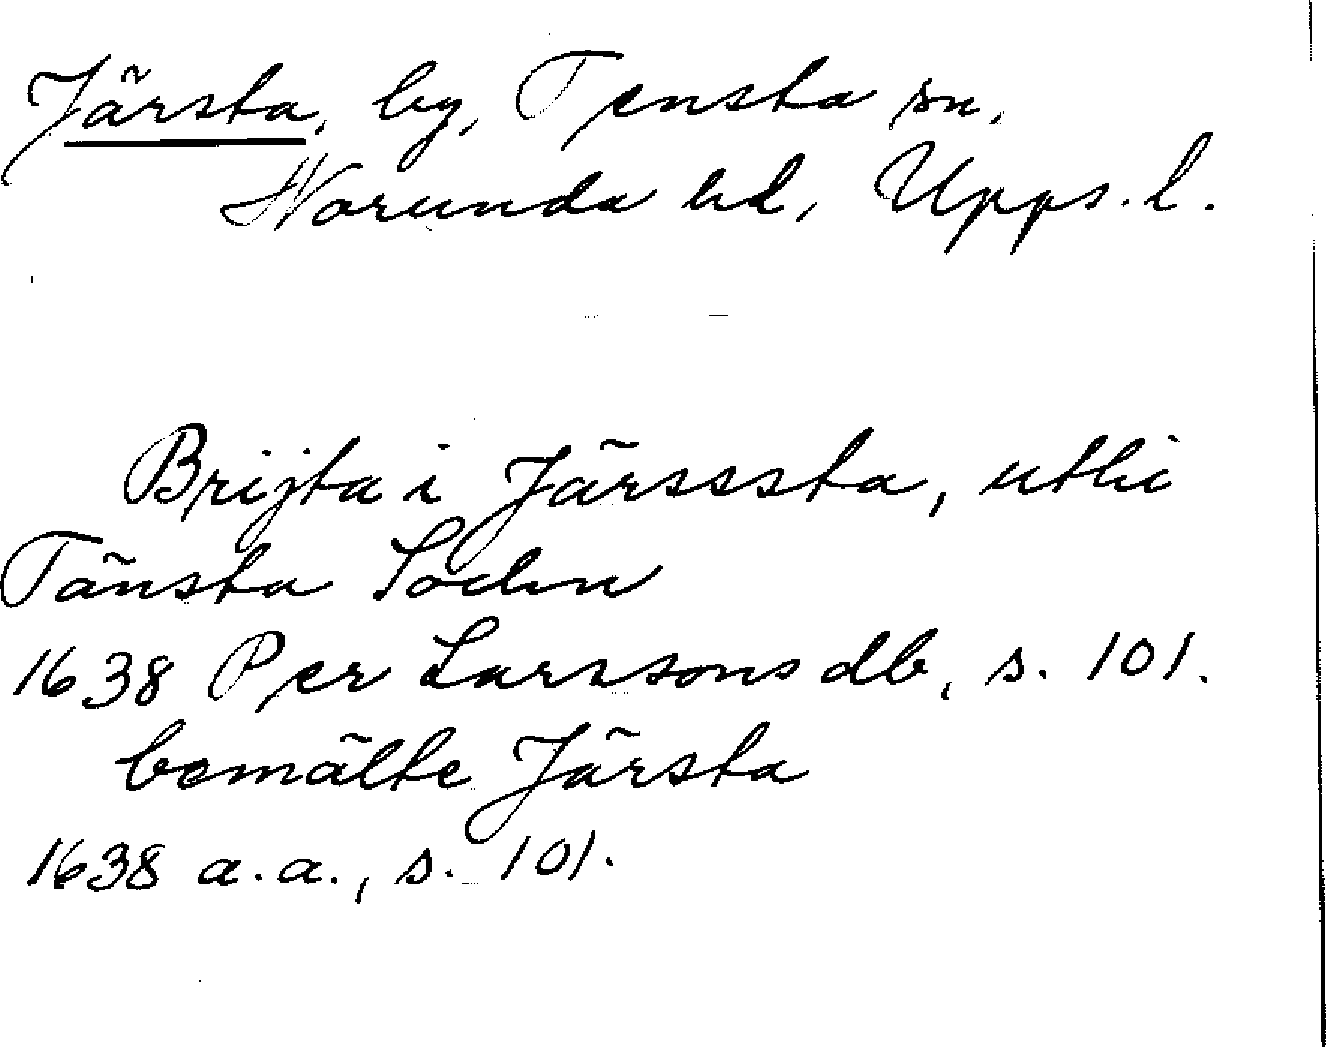 Järsta, by, Tensta sn,
Norunda hd, Upps. l.
Brijta i Järsssta, uthi
Tänsta Sochn
1638 Per Larssons db, s. 101.
bemälte Järsta
1638 a.a., s. 101.